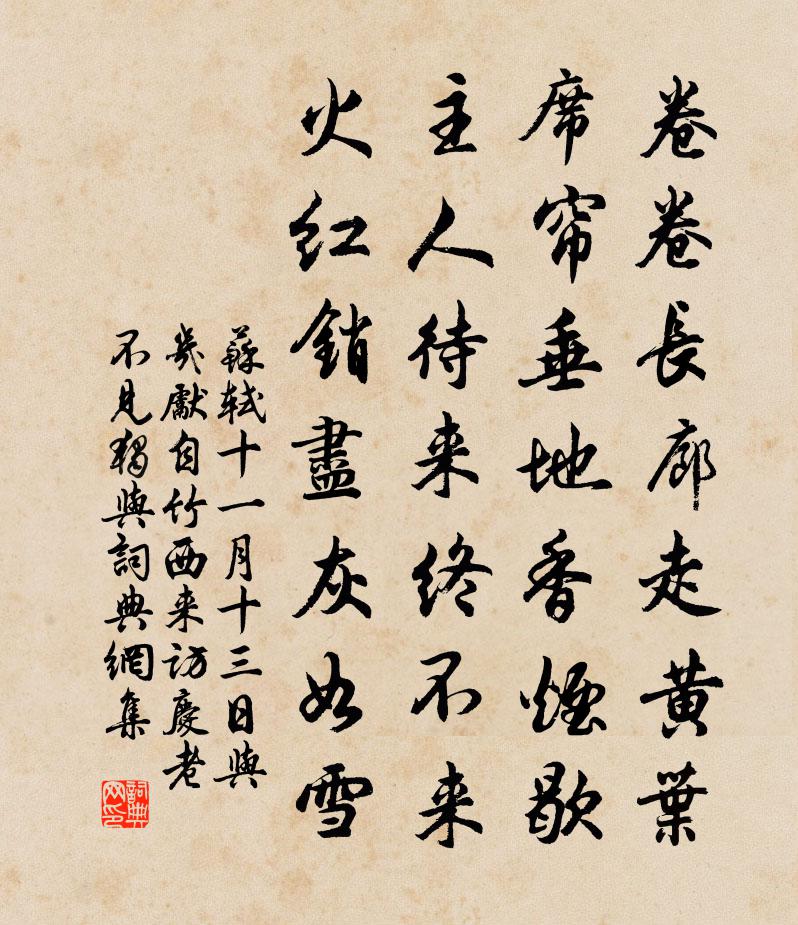 卷卷長廊走黄葉
席帘垂地香煙歇
主人待来終不来
火红銷盡灰如雪
蘇軾十一月十三日與
幾獻自竹西来訪慶老
不見獨與詞典網集
詞典网印